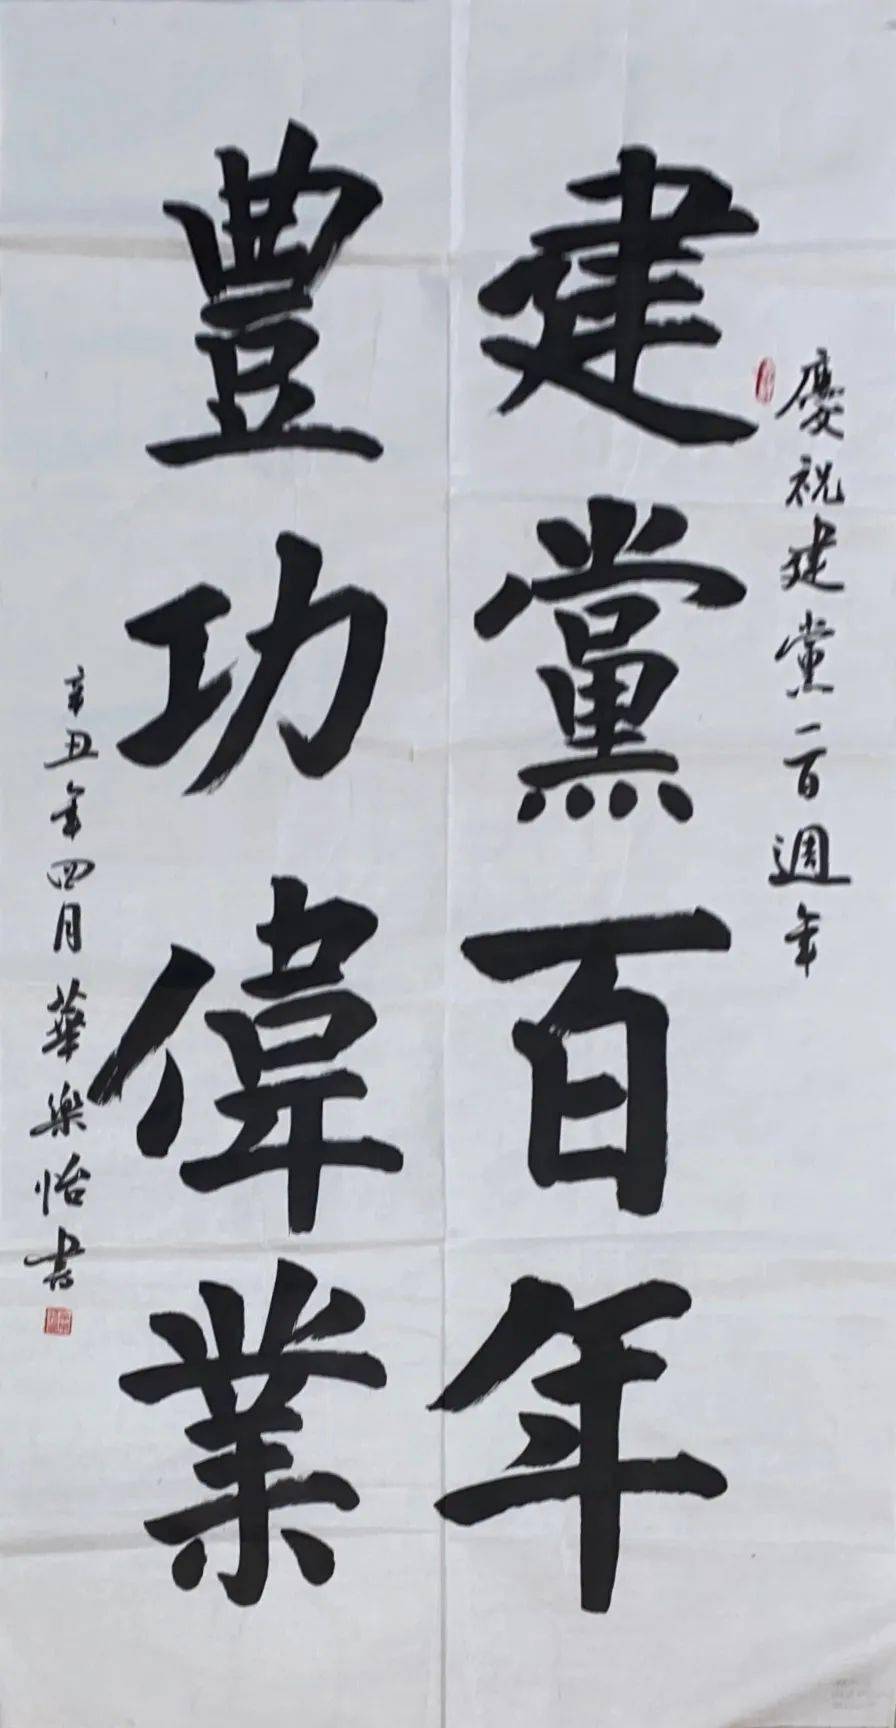 慶祝建黨一百週年
建黨百年
豐功偉業
辛丑年四月華樂怡書